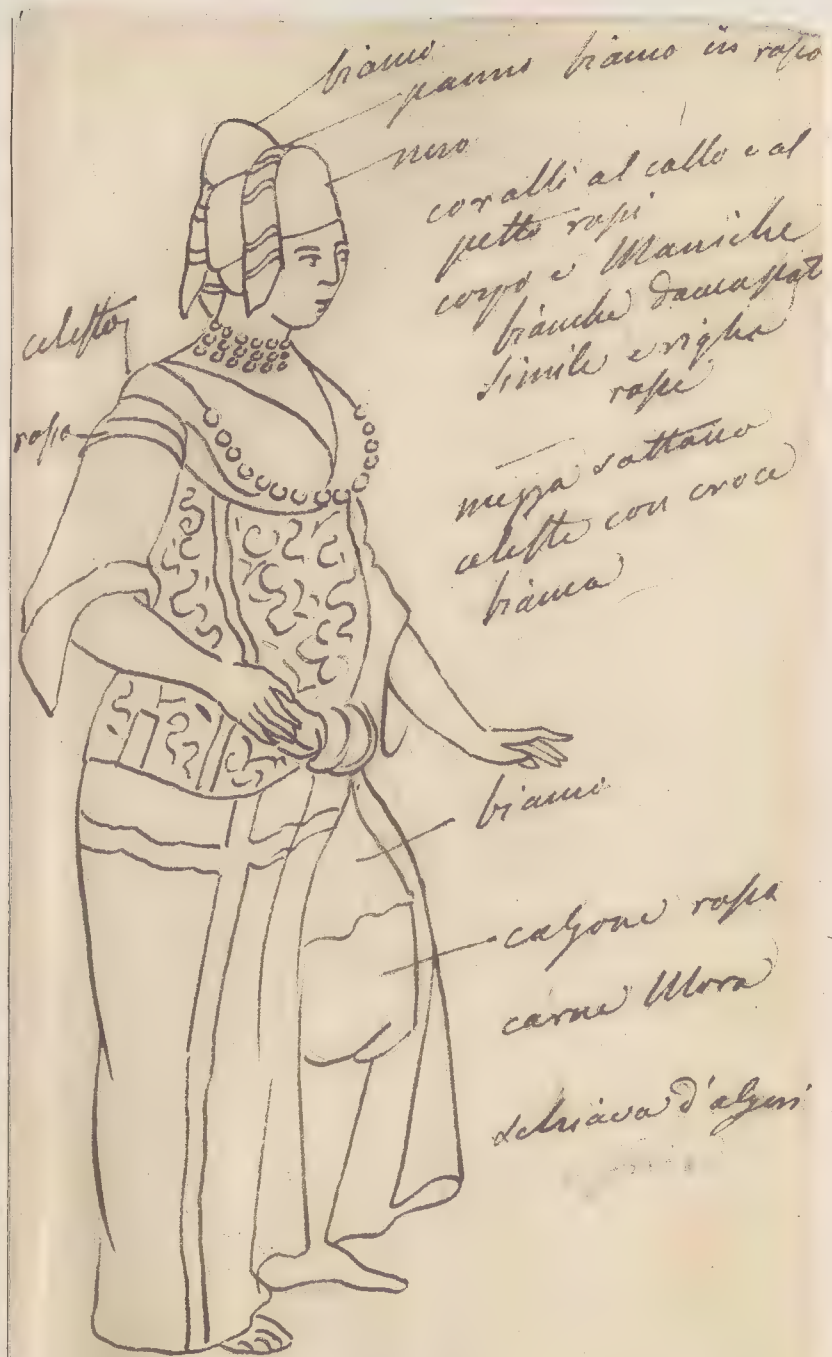 bianco
panno bianco in rosso
nero
coralli al collo e al
petto rossi
corpo e Maniche
bianche damascat
simile e righe
rosse
celeste
rosso
mezza sottana
celeste con croce
bianca
bianco
calzone rossa
carne Mora
schiava d'algeri